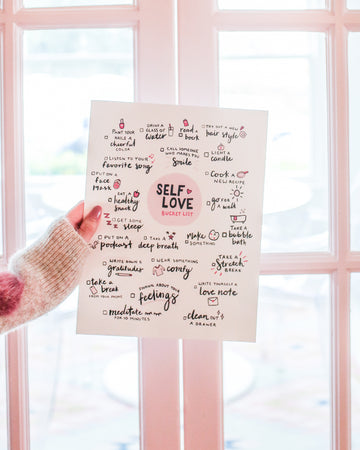 PAINT YOUR
NAILS A
cheerful
COLOR
DRINK A
GLASS OF
water
read a
book
TRY OUT A NEW
hair style
LISTEN TO YOUR
favorite song
CALL SOMEONE
WHO MAKES YOU
smile
LIGHT A
candle
PUT ON A
face
mask
EAT A
healthy
snack
SELF
LOVE
BUCKET LIST
COOK A
NEW RECIPE
GO FOR
a walk
GET SOME
sleep
PUT ON A
podcast
TAKE A
deep breath
make
SOMETHING
TAKE A
bubble
bath
WRITE DOWN 5
gratitudes
WEAR SOMETHING
comfy
TAKE A
Stretch
BREAK
take a
break
FROM YOUR PHONE
THINK ABOUT YOUR
feelings
WRITE YOURSELF A
love note
meditate
FOR 10 MINUTES
clean OUT
A DRAWER